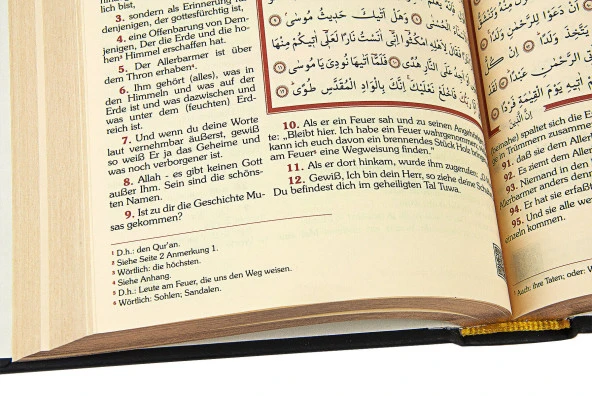 lich bist,
3. sondern als Erinnerung für
denjenigen, der gottesfürchtig ist,
4. eine Offenbarung von Dem-
jenigen, Der die Erde und die ho-
hen³ Himmel erschaffen hat.
5. Der Allerbarmer ist über
dem Thron erhaben⁴.
6. Ihm gehört (alles), was in
den Himmeln und was auf der
Erde ist und was dazwischen und
was unter dem (feuchten) Erd-
reich ist.
7. Und wenn du deine Worte
laut vernehmbar äußerst, gewiß
so weiß Er ja das Geheime und
was noch verborgener ist.
8. Allah - es gibt keinen Gott
außer Ihm. Sein sind die schöns-
ten Namen.
9. Ist zu dir die Geschichte Mu-
sas gekommen?
وَهَلْ أَتٰيكَ حَدِيثُ مُوسٰى
فَقَالَ لِاَهْلِهِ امْكُثُوا اِنّٖى اٰنَسْتُ نَارًا لَعَلّٖى اٰتٖيكُمْ مِنْهَا
عَلَى النَّارِ هُدًى فَلَمَّا اَتٰيهَا نُودِىَ يَا مُوسٰى
فَاخْلَعْ نَعْلَيْكَ اِنَّكَ بِالْوَادِ الْمُقَدَّسِ طُوًى
10. Als er ein Feuer sah und zu seinen
te: „Bleibt hier. Ich habe ein Feuer wahrgenommen,
kann ich euch davon ein brennendes Stück Holz bringen
am Feuer⁵ eine Wegweisung finden.“
11. Als er dort hinkam, wurde ihm zugerufen:
12. Gewiß, Ich bin dein Herr, so ziehe deine
Du befindest dich im geheiligten Tal Tuwa.
¹ D.h.: den Qur'an.
² Siehe Seite 2 Anmerkung 1.
³ Wörtlich: die höchsten.
⁴ Siehe Anhang.
⁵ D.h.: Leute am Feuer, die uns den Weg weisen.
⁶ Wörtlich: Sohlen; Sandalen.
اَنْ دَعَوْا لِلرَّحْمٰنِ وَلَدًا
يَتَّخِذَ وَلَدًا
الرَّحْمٰنِ عَبْدًا
يَوْمَ الْقِيٰمَةِ فَرْدًا
(beinahe) spaltet sich die
in Trümmern zusammen
91. daß sie dem
92. Es ziemt dem
93. Niemand in den
Allerbarmer anders denn
94. Er hat sie erfaßt
95. Und sie alle
einzeln kommen.
¹ Auch: ihre Taten; oder: